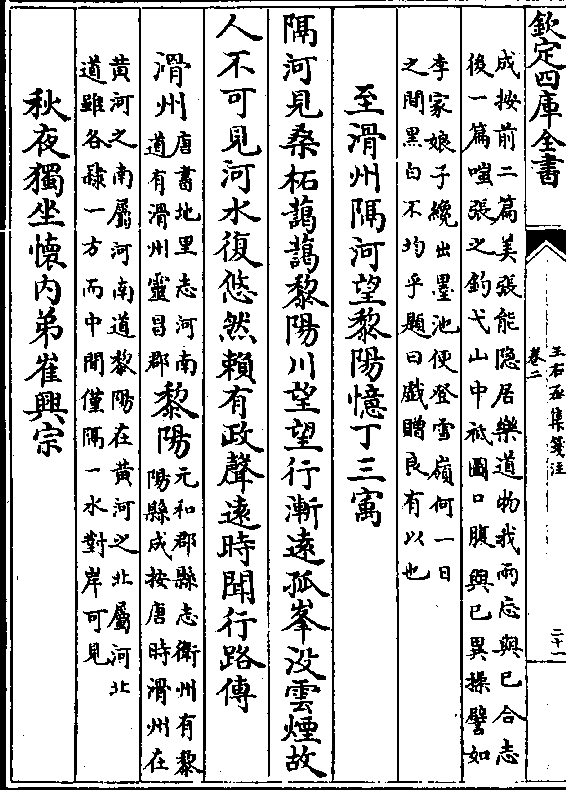 欽定四庫全書
王右丞集箋注
卷二
二十一
成按前二篇美張能隐居樂道物我兩忘與已合志
後一篇嗤張之釣弋山中祗圖口腹與已異操譬如
李家娘子纔出墨池便登雪嶺何一日
之間黑白不均乎題曰戲贈良有以也
至滑州隔河望黎陽憶丁三㝢
隔河見桑柘藹藹黎陽川望望行漸遠孤峯没雲煙故
人不可見河水復悠然賴有政聲遠時聞行路傳
滑州
唐書地里志河南
道有滑州靈昌郡
黎陽
元和郡縣志衞州有黎
陽縣成按唐時滑州在
黄河之南屬河南道黎陽在黄河之北屬河北
道雖各隸一方而中間僅隔一水對岸可見
秋夜獨坐懷内弟崔興宗